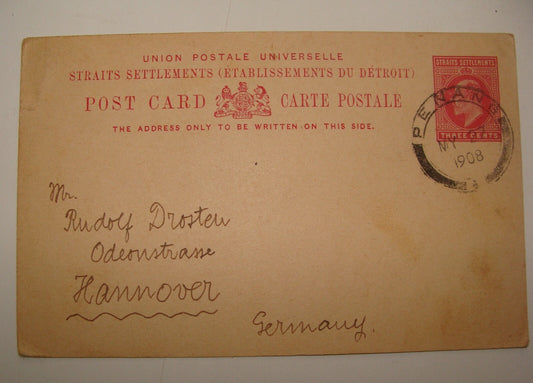 UNION POSTALE UNIVERSELLE
STRAITS SETTLEMENTS (ÉTABLISSEMENTS DU DÉTROIT)
POST CARD CARTE POSTALE
THE ADDRESS ONLY TO BE WRITTEN ON THIS SIDE.
STRAITS SETTLEMENTS
THREE CENTS
PENANG
MY
1908
Mr.
Rudolf Drosten
Odeonstrasse
Hannover
Germany.